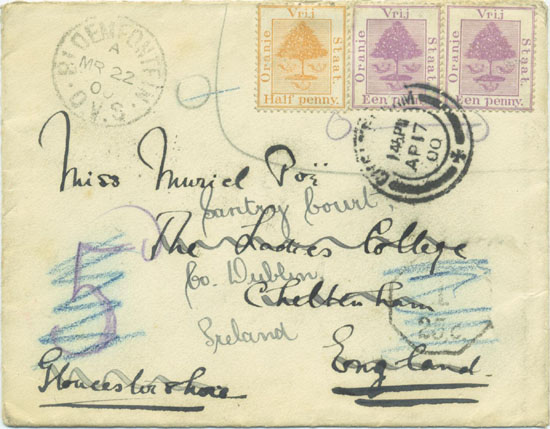 BLOEMFONTEIN
A
MR 22
00
O.V.S.
Vrij
Oranje Staat.
Half penny.
Vrij
Oranje Staat.
Een penny.
Vrij
Oranje Staat.
Een penny.
CHELTENHAM
1.45 PM
AP 17
00
Miss Muriel Poë
Santry Court,
The Ladies College
Co. Dublin
Cheltenham
Ireland
England.
Gloucestershire
5
25 c